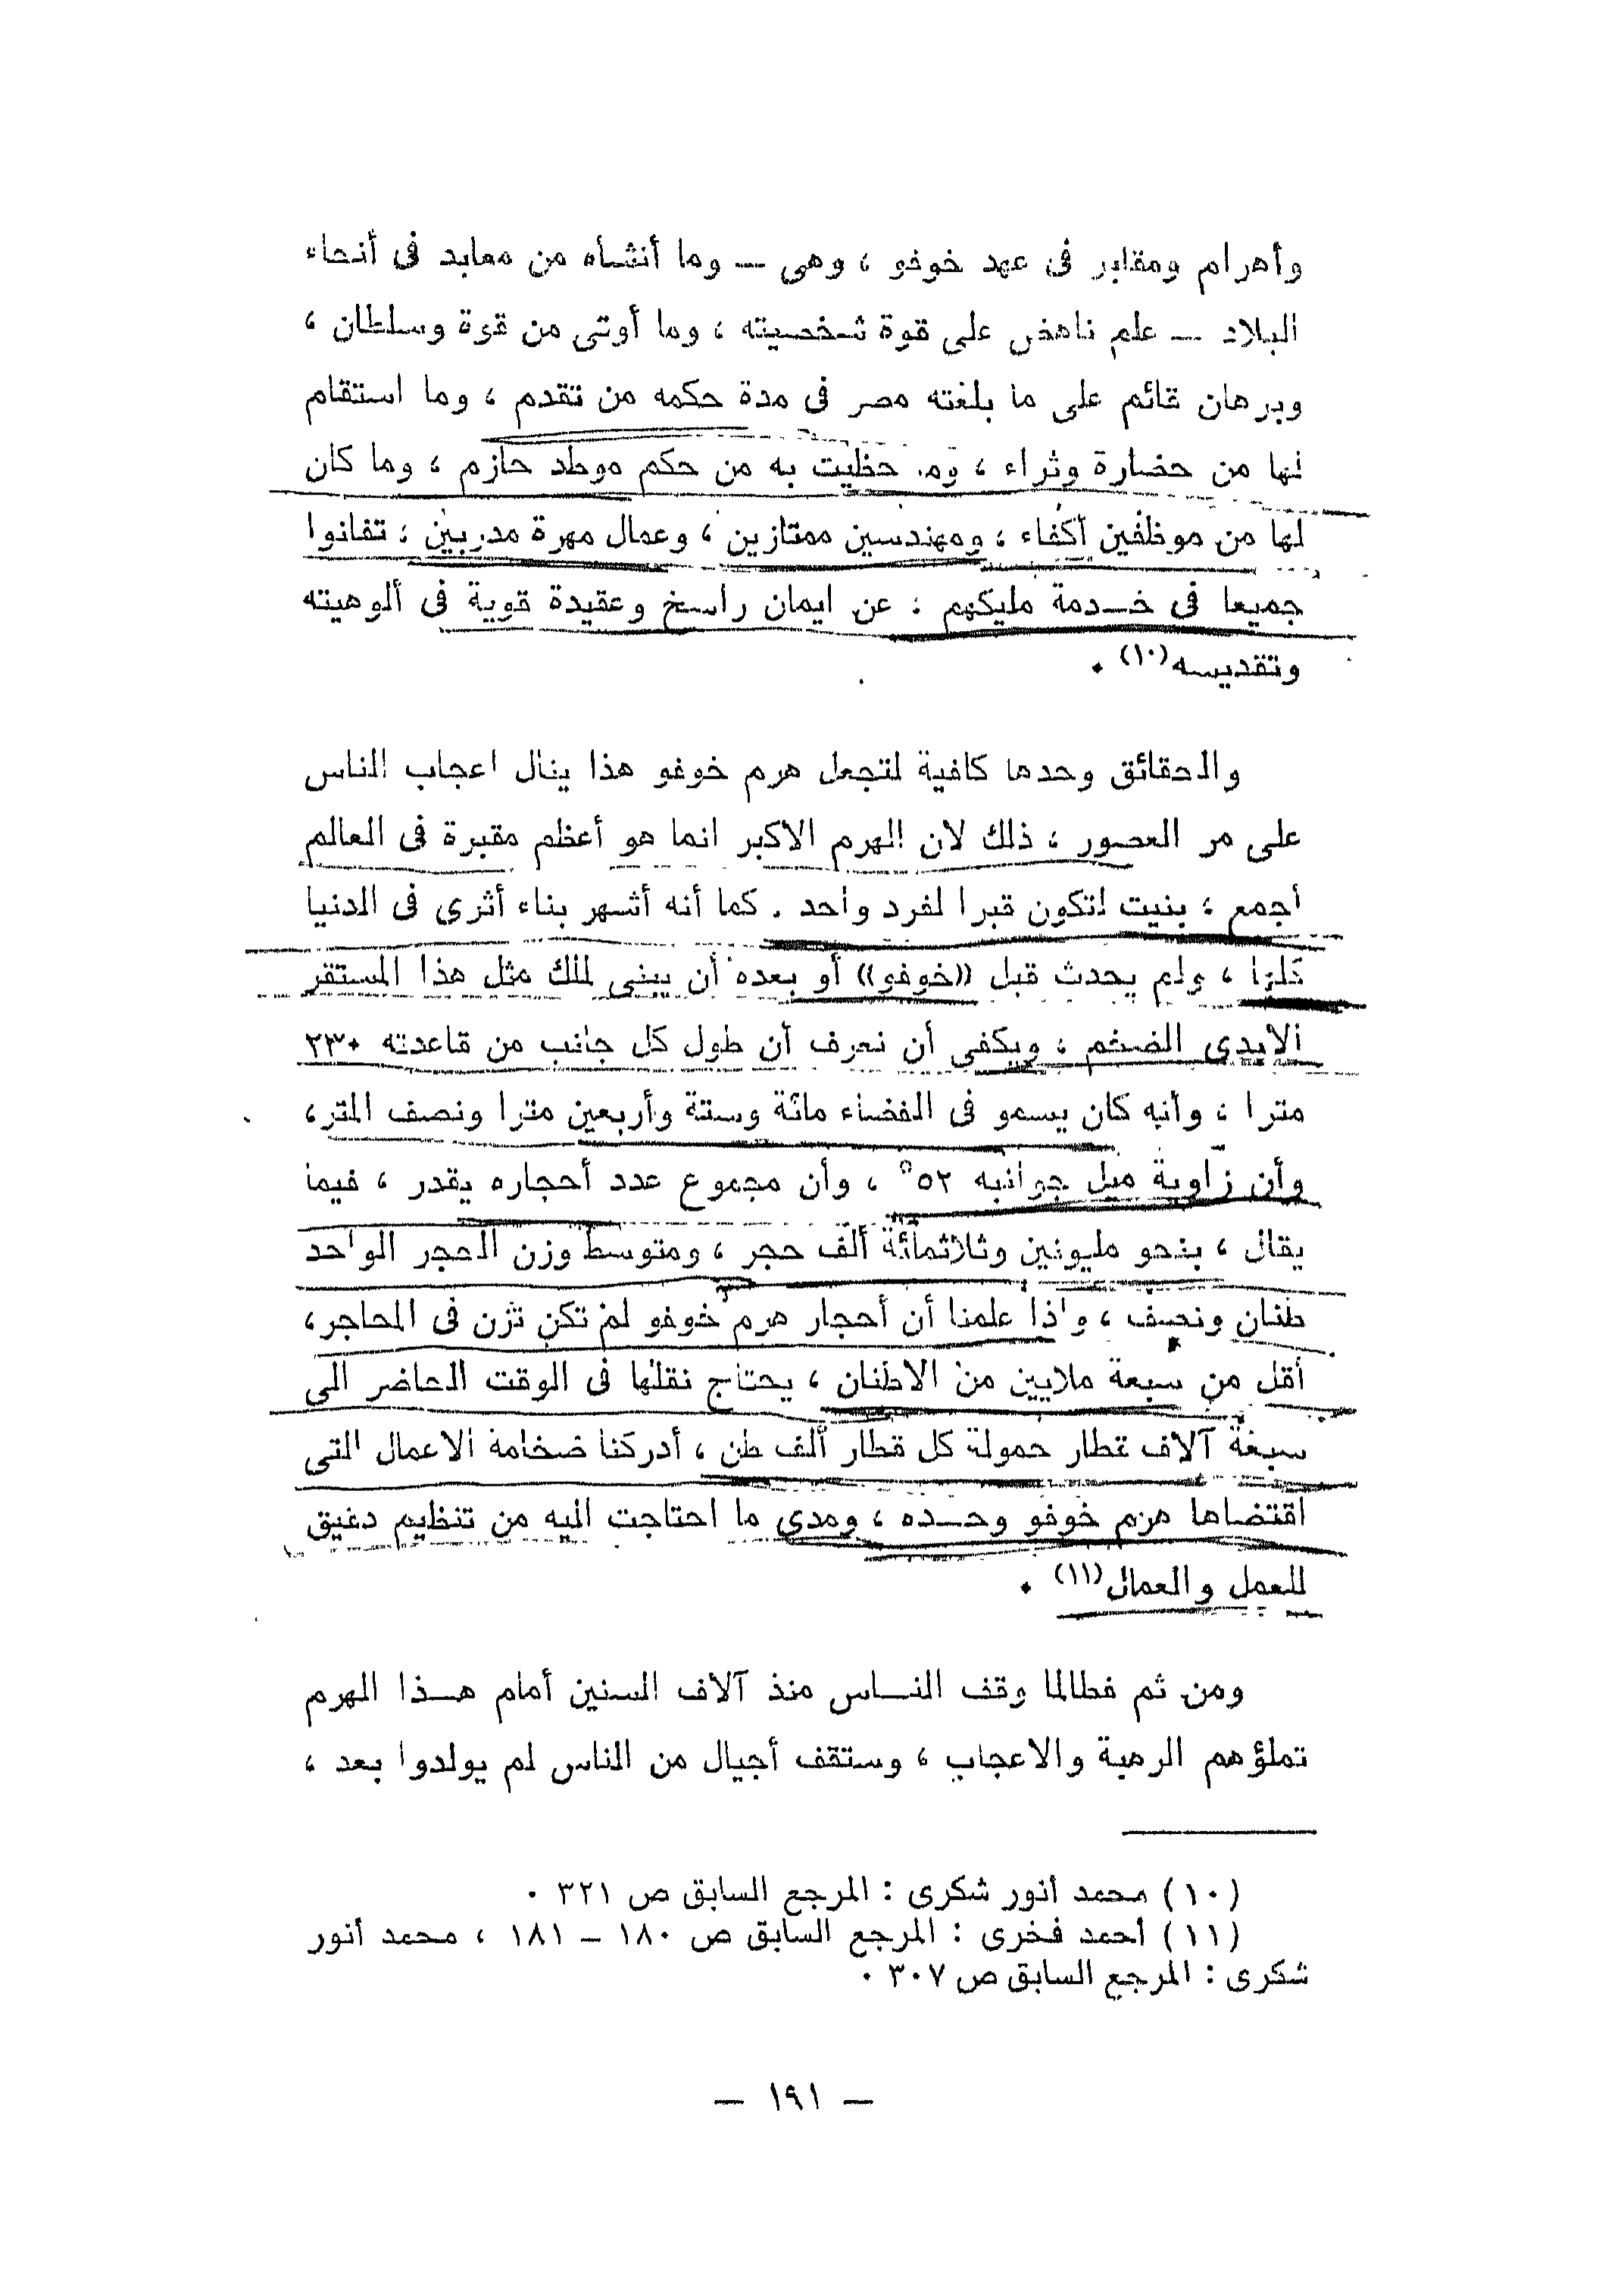 وأهرام ومقابر فى عهد خوفو ، وهى — وما أنشأه من معابد فى أنحاء
البلاد — علم ناهض على قوة شخصيته ، وما أوتى من قوة وسلطان ،
وبرهان قائم على ما بلغته مصر فى مدة حكمه من تقدم ، وما استقام
لها من حضارة وثراء ، وما حظيت به من حكم موطد حازم ، وما كان
لها من موظفين أكفاء ، ومهندسين ممتازين ، وعمال مهرة مدربين ، تفانوا
جميعا فى خـدمة مليكهم ، عن ايمان راسخ وعقيدة قوية فى ألوهيته
وتقديسه(١٠) ٠
والحقائق وحدها كافية لتجعل هرم خوفو هذا ينال اعجاب الناس
على مر العصور ، ذلك لان الهرم الاكبر انما هو أعظم مقبرة فى العالم
أجمع ، بنيت لتكون قبرا لفرد واحد ٠ كما أنه أشهر بناء أثرى فى الدنيا
كلها ، ولم يحدث قبل «خوفو» أو بعده أن يبنى لملك مثل هذا المستقر
الابدى الضخم ، ويكفى أن نعرف أن طول كل جانب من قاعدته ٢٣٠
مترا ، وأنه كان يسمو فى الفضاء مائة وستة وأربعين مترا ونصف المتر،
وأن زاوية ميل جوانبه ٥٢° ، وأن مجموع عدد أحجاره يقدر ، فيما
يقال ، بنحو مليونين وثلاثمائة ألف حجر ، ومتوسط وزن الحجر الواحد
طنان ونصف ، واذا علمنا أن أحجار هرم خوفو لم تكن تزن فى المحاجر،
أقل من سبعة ملايين من الاطنان ، يحتاج نقلها فى الوقت الحاضر الى
سبعة آلاف قطار حمولة كل قطار ألف طن ، أدركنا ضخامة الاعمال التى
اقتضاها هرم خوفو وحـده ، ومدى ما احتاجت اليه من تنظيم دقيق
للعمل والعمال(١١) ٠
ومن ثم فطالما وقف النـاس منذ آلاف السنين أمام هـذا الهرم
تملؤهم الرهبة والاعجاب ، وستقف أجيال من الناس لم يولدوا بعد ،
(١٠) محمد أنور شكرى : المرجع السابق ص ٣٢١ ٠
(١١) أحمد فخرى : المرجع السابق ص ١٨٠ – ١٨١ ، محمد أنور
شكرى : المرجع السابق ص ٣٠٧ ٠
— ١٩١ —